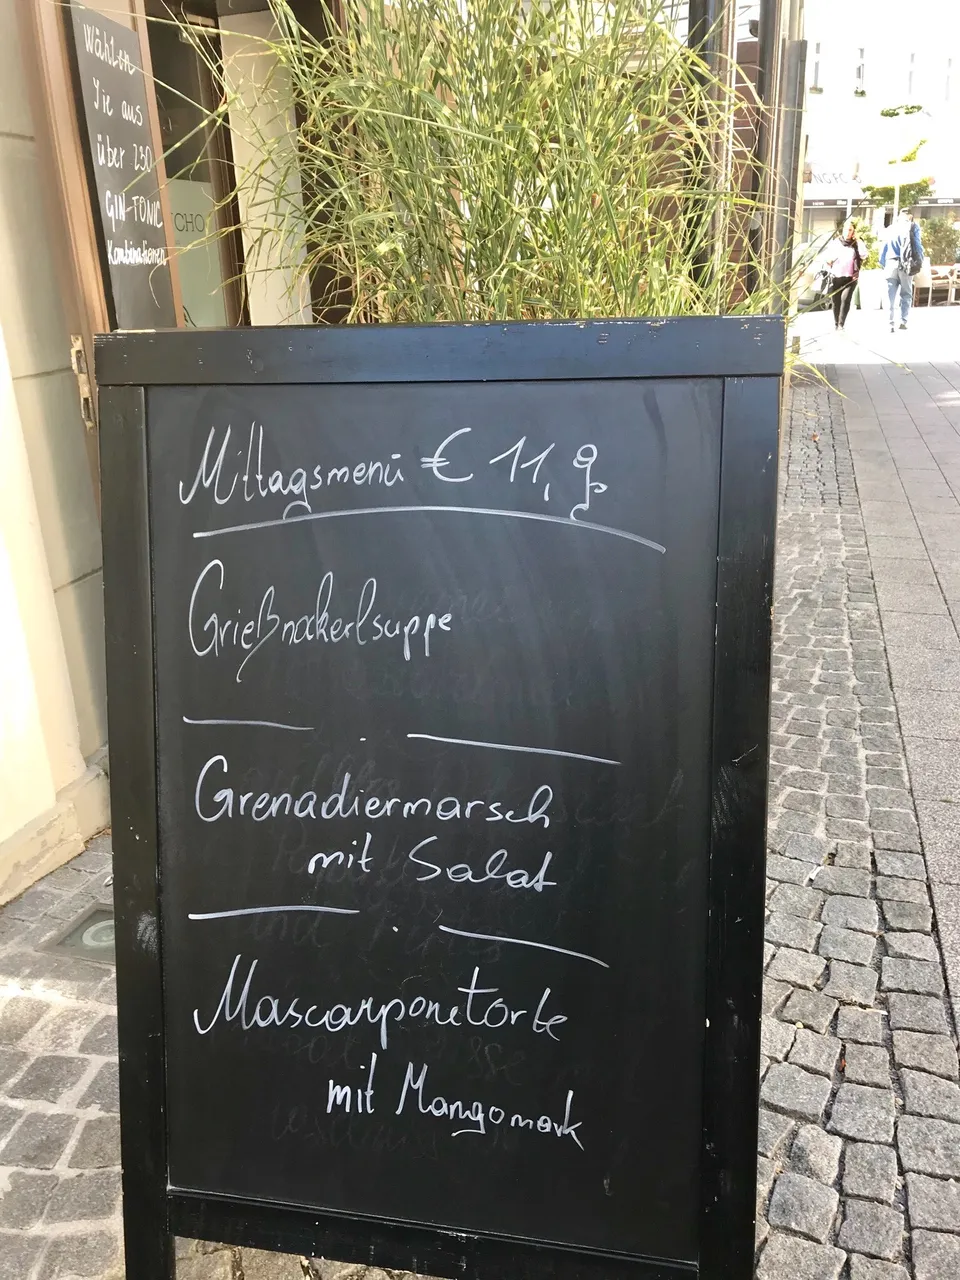 Wählen
Sie aus
über 230
GIN-TONIC
Kombinationen
CHO
Mittagsmenü € 11,9
Grießnockerlsuppe
Grenadiermarsch
mit Salat
Mascarponetorte
mit Mangomark